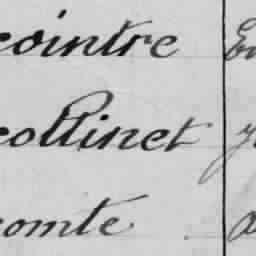 cointre
collinet
comte